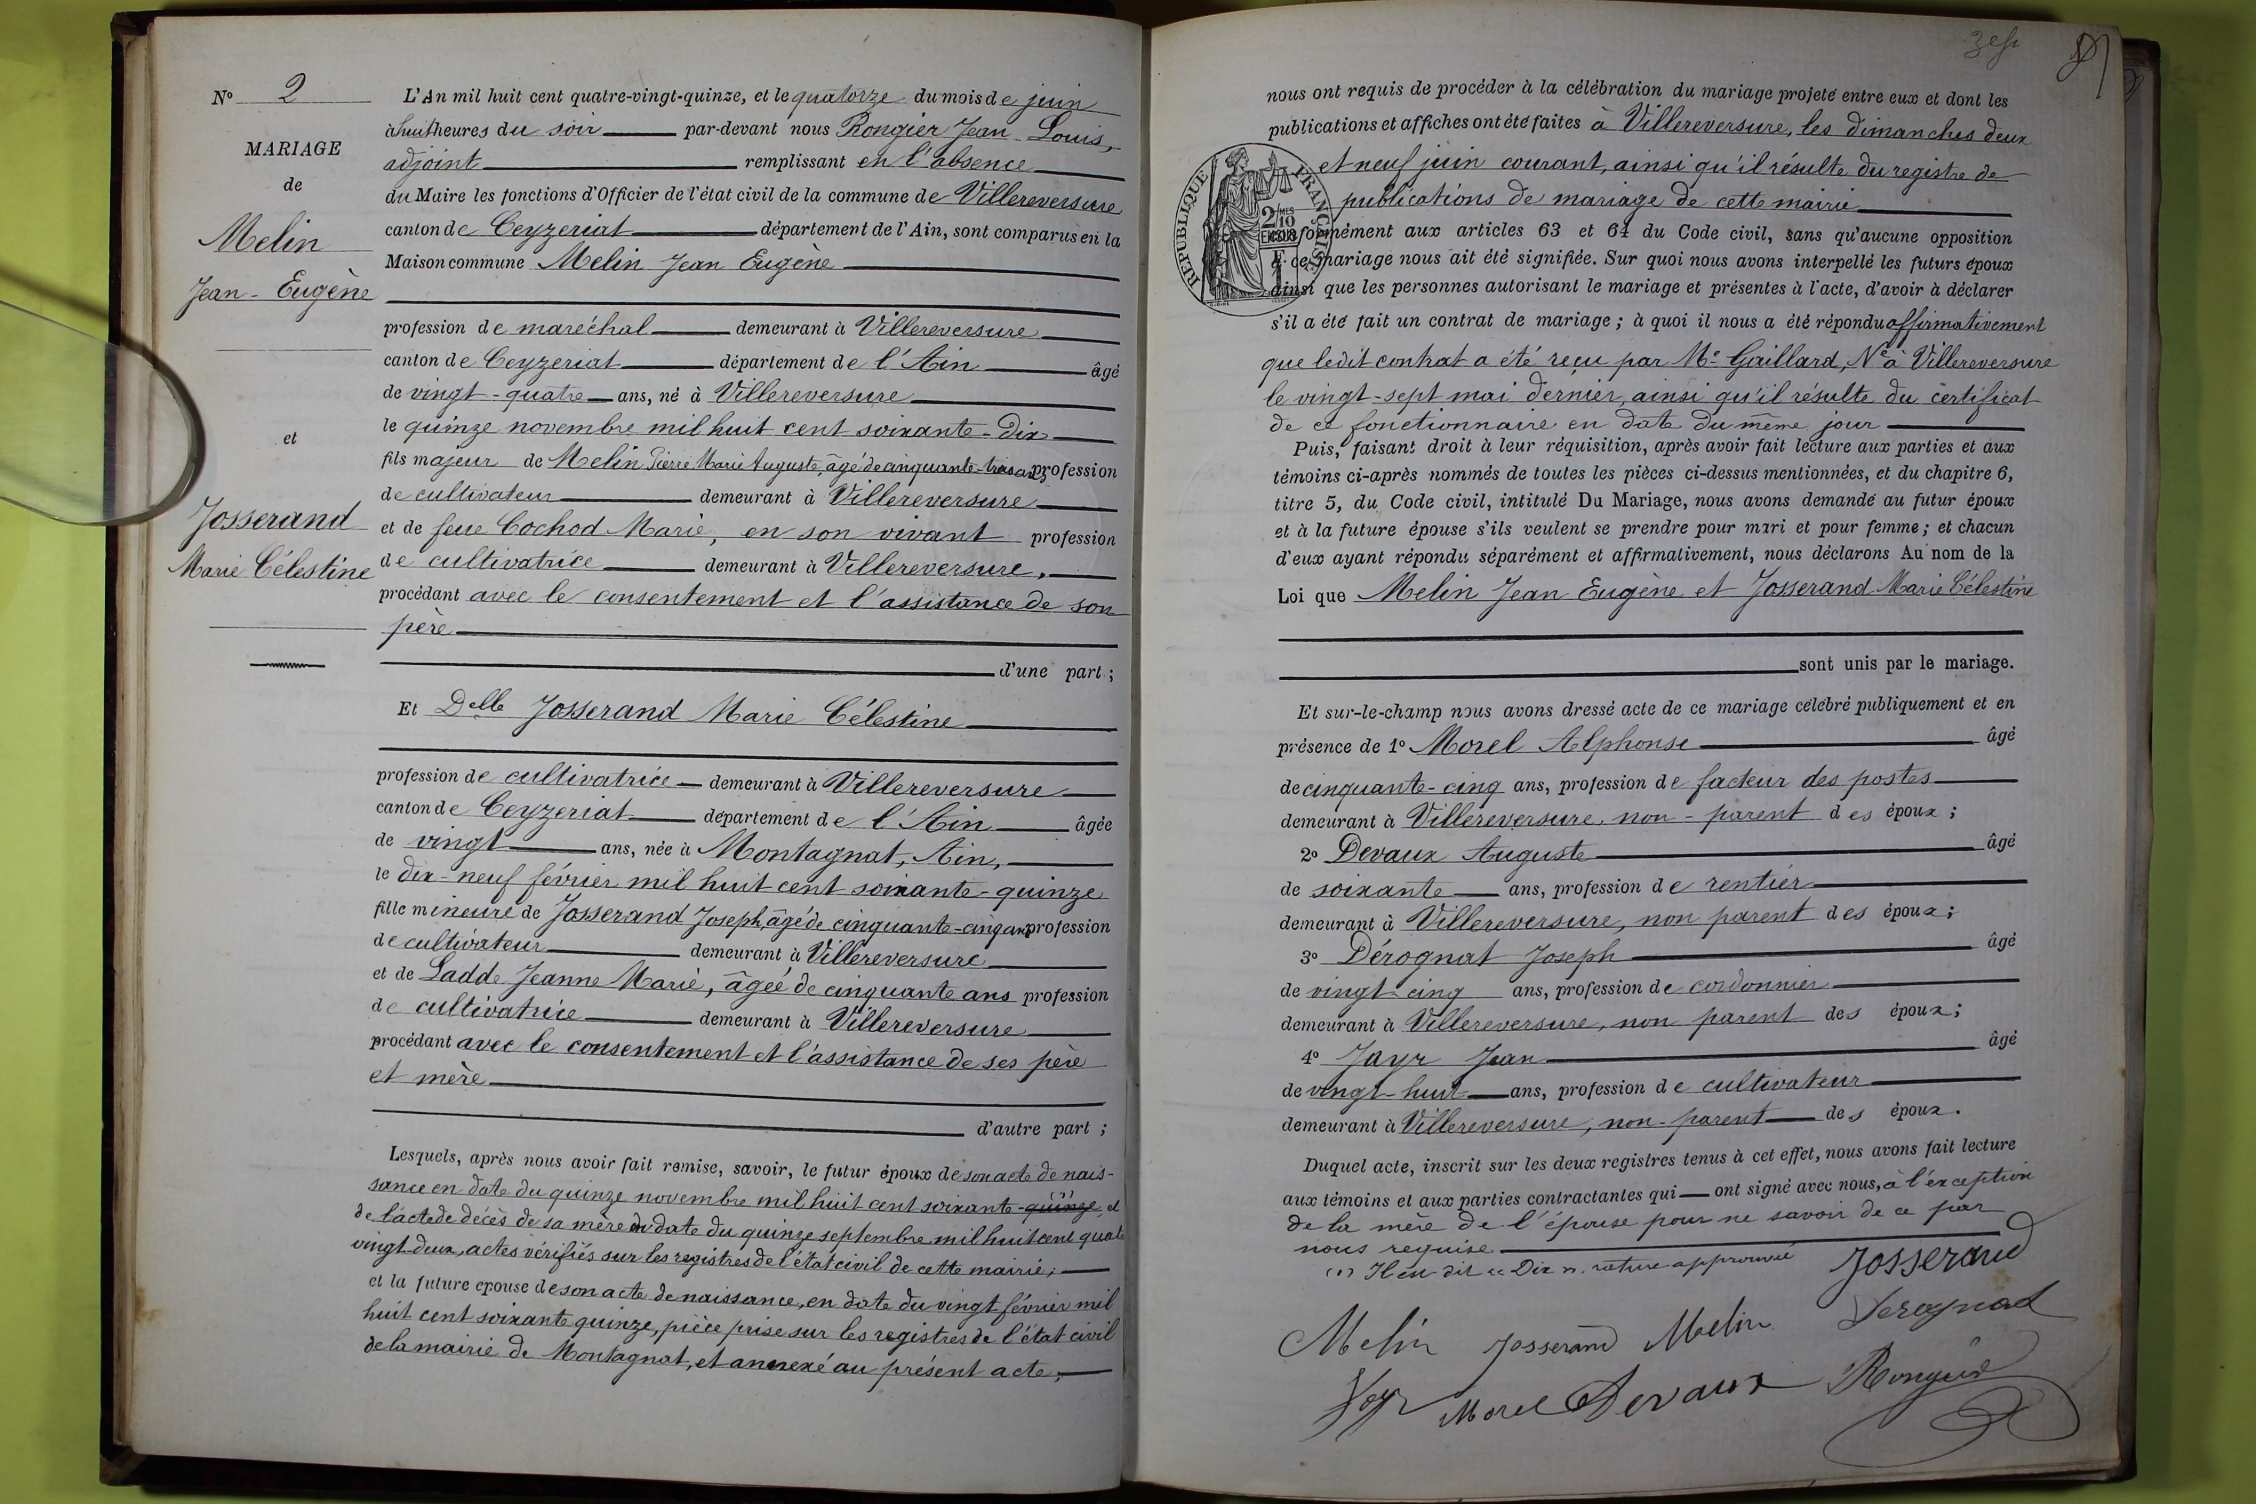 No 2
MARIAGE
de
Melin
Jean-Eugène
et
Josserand
Marie Célestine
L'An mil huit cent quatre-vingt-quinze, et le quatorze du mois de juin
à huit heures du soir par-devant nous Rongier Jean-Louis,
adjoint remplissant en l'absence
du Maire les fonctions d'Officier de l'état civil de la commune de Villereversure
canton de Ceyzeriat département de l'Ain, sont comparus en la
Maison commune Melin Jean Eugène
profession de maréchal demeurant à Villereversure
canton de Ceyzeriat département de l'Ain âgé
de vingt-quatre ans, né à Villereversure
le quinze novembre mil huit cent soixante-dix
fils majeur de Melin Pierre Marie Auguste, âgé de cinquante-trois ans profession
de cultivateur demeurant à Villereversure
et de feue Cochod Marie, en son vivant profession
de cultivatrice demeurant à Villereversure,
procédant avec le consentement et l'assistance de son
père
d'une part ;
Et Delle Josserand Marie Célestine
profession de cultivatrice demeurant à Villereversure
canton de Ceyzeriat département de l'Ain âgée
de vingt ans, née à Montagnat, Ain,
le dix-neuf février mil huit cent soixante-quinze
fille mineure de Josserand Joseph, âgé de cinquante-cinq ans profession
de cultivateur demeurant à Villereversure
et de Ladde Jeanne Marie, âgée de cinquante ans profession
de cultivatrice demeurant à Villereversure
procédant avec le consentement et l'assistance de ses père
et mère
d'autre part ;
Lesquels, après nous avoir fait remise, savoir, le futur époux de son acte de nais-
sance en date du quinze novembre mil huit cent soixante-quinze, et
de l'acte de décès de sa mère en date du quinze septembre mil huit cent quatre
vingt-deux, actes vérifiés sur les registres de l'état civil de cette mairie;
et la future epouse de son acte de naissance, en date du vingt février mil
huit cent soixante quinze, pièce prise sur les registres de l'état civil
de la mairie de Montagnat, et annexé au présent acte,
nous ont requis de procéder à la célébration du mariage projeté entre eux et dont les
publications et affiches ont été faites à Villereversure, les dimanches deux
et neuf juin courant, ainsi qu'il résulte du registre de
publications de mariage de cette mairie
RÉPUBLIQUE FRANÇAISE
2/10MES
EN SUS
conformément aux articles 63 et 64 du Code civil, sans qu'aucune opposition
à ce mariage nous ait été signifiée. Sur quoi nous avons interpellé les futurs époux
ainsi que les personnes autorisant le mariage et présentes à l'acte, d'avoir à déclarer
s'il a été fait un contrat de mariage ; à quoi il nous a été répondu affirmativement
que ledit contrat a été reçu par Me Gaillard, Nre à Villereversure
le vingt-sept mai dernier, ainsi qu'il résulte du certificat
de ce fonctionnaire en date du même jour
Puis, faisant droit à leur réquisition, après avoir fait lecture aux parties et aux
témoins ci-après nommés de toutes les pièces ci-dessus mentionnées, et du chapitre 6,
titre 5, du Code civil, intitulé Du Mariage, nous avons demandé au futur époux
et à la future épouse s'ils veulent se prendre pour mari et pour femme ; et chacun
d'eux ayant répondu séparément et affirmativement, nous déclarons Au nom de la
Loi que Melin Jean Eugène et Josserand Marie Célestine
sont unis par le mariage.
Et sur-le-champ nous avons dressé acte de ce mariage célébré publiquement et en
présence de 1o Morel Alphonse âgé
de cinquante-cinq ans, profession de facteur des postes
demeurant à Villereversure, non-parent des époux ;
2o Devaux Auguste âgé
de soixante ans, profession de rentier
demeurant à Villereversure, non parent des époux ;
3o Dérognat Joseph âgé
de vingt-cinq ans, profession de cordonnier
demeurant à Villereversure, non parent des époux ;
4o Jayr Jean âgé
de vingt-huit ans, profession de cultivateur
demeurant à Villereversure, non-parent des époux.
Duquel acte, inscrit sur les deux registres tenus à cet effet, nous avons fait lecture
aux témoins et aux parties contractantes qui ont signé avec nous, à l'exception
de la mère de l'épouse pour ne savoir de ce par
nous requise
(1) Il en dit « Dix ». rature approuvée Josserand
Melin Josserand Melin Derognat
Jayr Morel Devaux Rongier